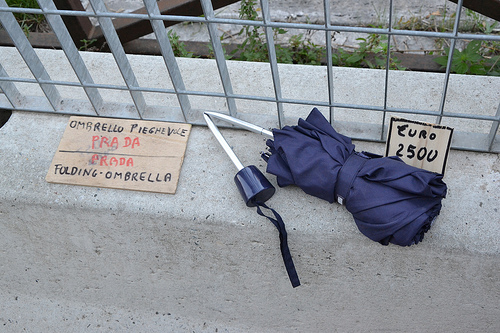 OMBRELLO PIEGHEVOLE
PRADA
PRADA
FOLDING-OMBRELLA
EURO
2500